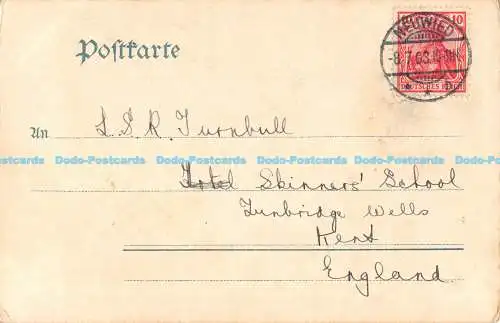 Postkarte
10
NEUWIED
-8.7.03.
DEUTSCHES REICH
An L. S. R. Turnbull
Dodo-Postcards Dodo-Postcards Dodo-Postcards Dodo-Postcards Dodo-Postcards Dodo-Postcards
Skinners' School
Tunbridge Wells
Kent
England